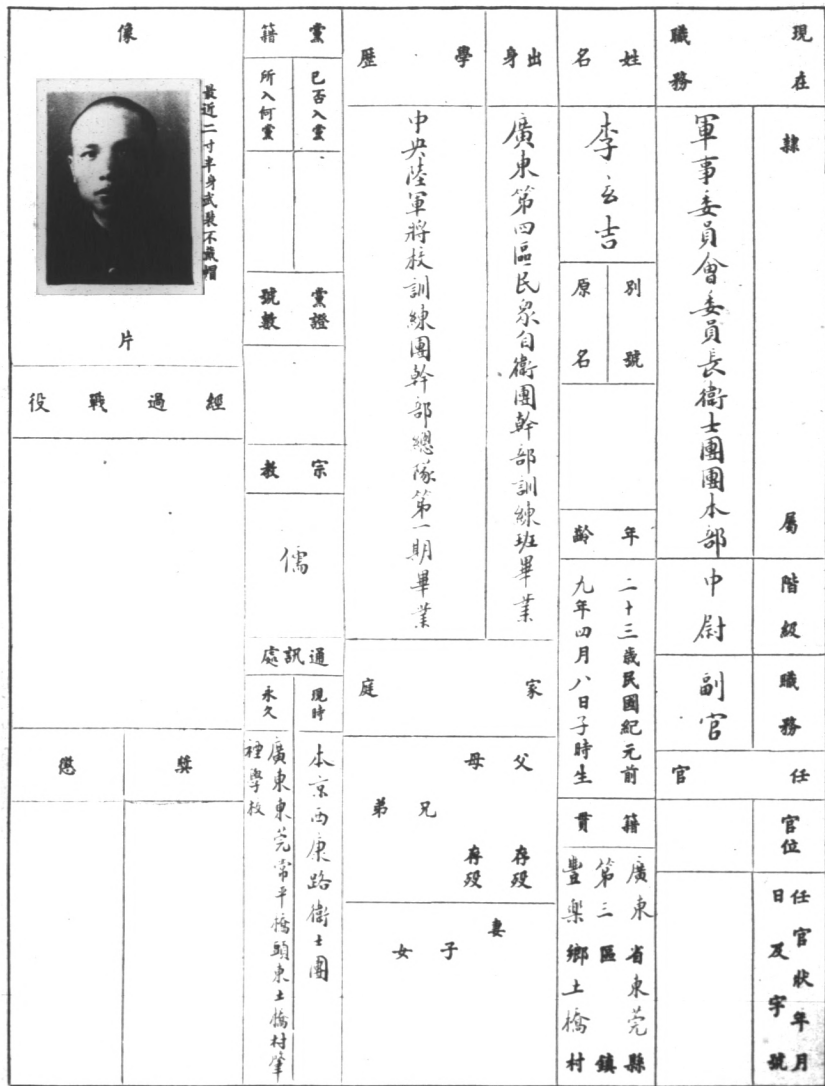 現在職務
隸屬
軍事委員會委員長衞士團團本部
階級
中尉
職務
副官
任官
官位
任官狀年月日及字號
姓名
李玄吉
別號
原名
年齡
二十三歲民國紀元前
九年四月八日子時生
籍貫
廣東省東莞縣
第三區鎮
豐樂鄉土橋村
出身
廣東第四區民眾自衞團幹部訓練班畢業
學歷
中央陸軍將校訓練團幹部總隊第一期畢業
家庭
父
母
存歿
存歿
兄
弟
妻
子
女
黨籍
已否入黨
所入何黨
黨證號數
宗教
儒
通訊處
現時
本京西康路衞士團
永久
廣東東莞常平橋頭東土橋村肇
禋學校
像片
最近二寸半身武裝不戴帽
經過戰役
獎
懲